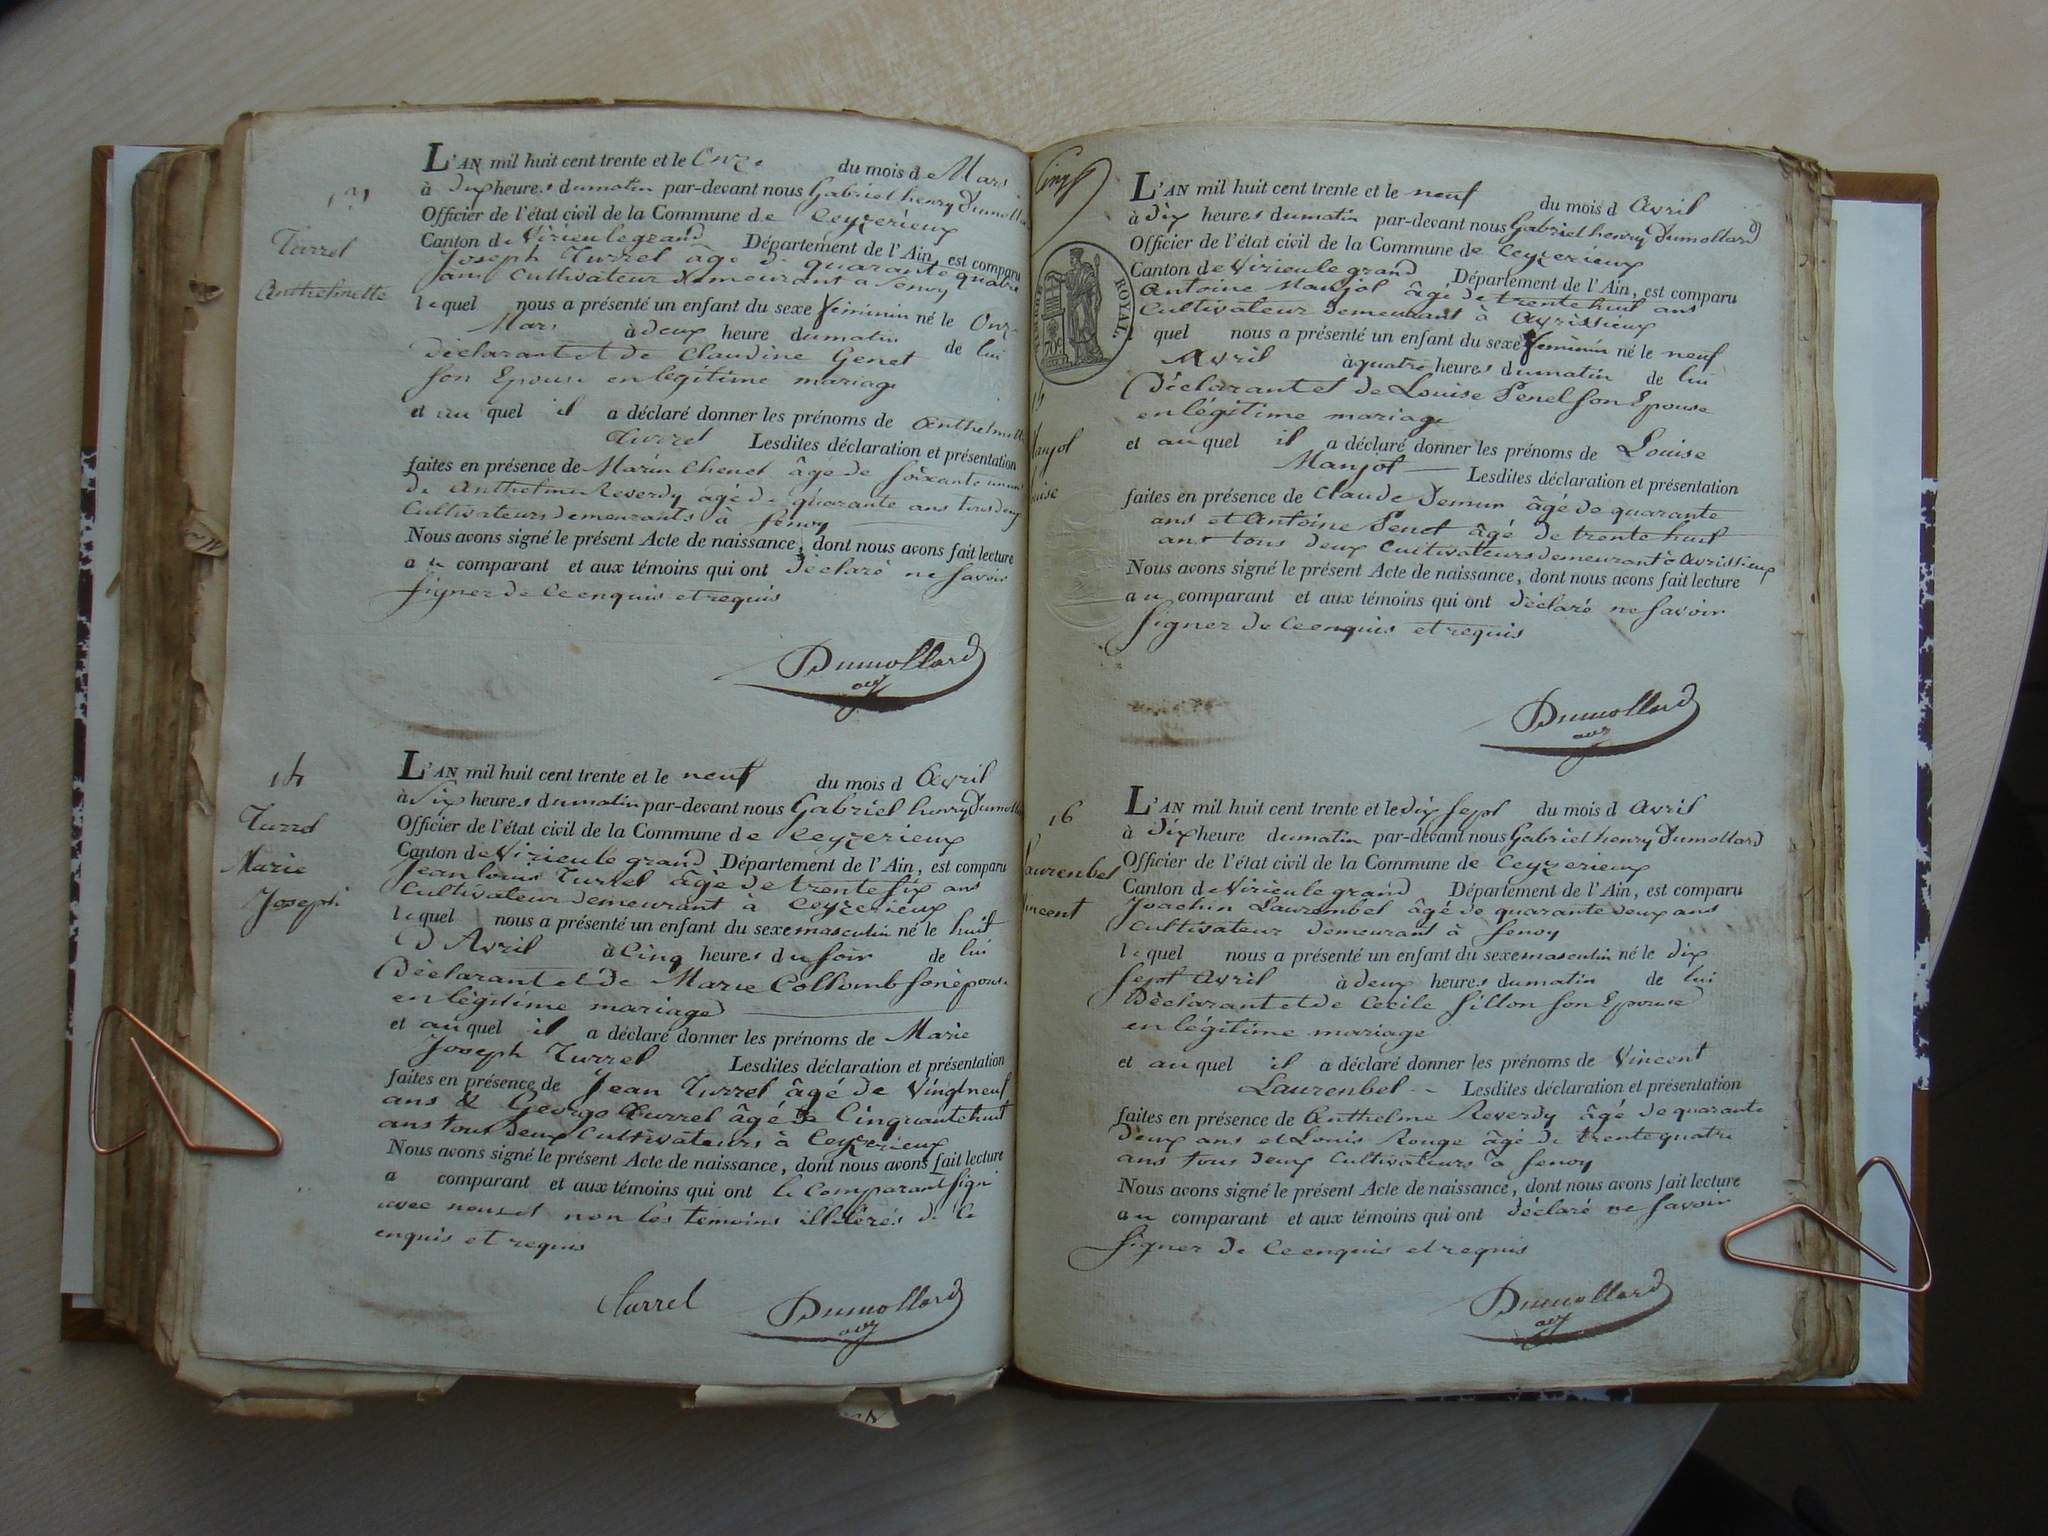 13
Turrel
Anthelmette
L'AN mil huit cent trente et le Onze du mois de Mars
à dix heures du matin par-devant nous Gabriel henry Dumollard
Officier de l'état civil de la Commune de Ceyzerieux
Canton de Virieu le grand Département de l'Ain, est comparu
Joseph Turrel âgé de quarante quatre
ans Cultivateur demeurant a Senoy
lequel nous a présenté un enfant du sexe feminin né le Onze
Mars à deux heure du matin de lui
déclarant et de Claudine Genet
son Epouse en legitime mariage
et au quel il a déclaré donner les prénoms de Anthelmette
Turrel Lesdites déclaration et présentation
faites en présence de Marin Chenet âgé de soixante un ans
de Anthelme Reverdy âgé de quarante ans tous deux
Cultivateurs demeurants à Senoy
Nous avons signé le présent Acte de naissance, dont nous avons fait lecture
au comparant et aux témoins qui ont déclaré ne savoir
signer de Ce enquis et requis
Dumollard
14
Turrel
Marie
Joseph
L'AN mil huit cent trente et le neuf du mois d Avril
à dix heures du matin par-devant nous Gabriel henry Dumollard
Officier de l'état civil de la Commune de Ceyzerieux
Canton de Virieu le grand Département de l'Ain, est comparu
Jean louis Turrel âgé de trente six ans
Cultivateur demeurant à Ceyzerieux
lequel nous a présenté un enfant du sexe masculin né le huit
d Avril à Cinq heures du soir de lui
Déclarant et de Marie Collomb son épouse
en légitime mariage
et au quel il a déclaré donner les prénoms de Marie
Joseph Turrel Lesdites déclaration et présentation
faites en présence de Jean Turrel âgé de Vingt neuf
ans & George Turrel âgé de Cinquante huit
ans tous deux Cultivateurs à Ceyzerieux
Nous avons signé le présent Acte de naissance, dont nous avons fait lecture
a comparant et aux témoins qui ont le Comparant signé
avec nous et non les temoins illitérés de Ce
enquis et requis
Turrel Dumollard
Cinq
ROYAL.
70c
Manjot
L'AN mil huit cent trente et le neuf du mois d Avril
à Dix heures du matin par-devant nous Gabriel henry Dumollard
Officier de l'état civil de la Commune de Ceyzerieux
Canton de Virieu le grand Département de l'Ain, est comparu
Antoine Manjot âgé de trente huit ans
Cultivateur demeurant à Avrissieux
quel nous a présenté un enfant du sexe feminin né le neuf
Avril à quatre heures du matin de lui
Déclarant et de Louise Penel son Epouse
en légitime mariage
et au quel il a déclaré donner les prénoms de Louise
Manjot Lesdites déclaration et présentation
faites en présence de Claude Demur âgé de quarante
ans et Antoine Penet âgé de trente huit
ans tous deux Cultivateurs demeurant à Avrissieux
Nous avons signé le présent Acte de naissance, dont nous avons fait lecture
au comparant et aux témoins qui ont déclaré ne savoir
signer de Ce enquis et requis
Dumollard
16
Laurenbel
Vincent
L'AN mil huit cent trente et le dix sept du mois d Avril
à Dix heure du matin par-devant nous Gabriel henry Dumollard
Officier de l'état civil de la Commune de Ceyzerieux
Canton de Virieu le grand Département de l'Ain, est comparu
Joachin Laurembel âgé de quarante deux ans
Cultivateur demeurant à Senoy
lequel nous a présenté un enfant du sexe masculin né le Dix
Sept Avril à deux heures du matin de lui
Déclarant et de Cecile Sillon son Epouse
en légitime mariage
et au quel il a déclaré donner les prénoms de Vincent
Laurenbel Lesdites déclaration et présentation
faites en présence de Anthelme Reverdy âgé de quarante
deux ans et Louis Rouge âgé de trente quatre
ans tous deux Cultivateurs à Senoy
Nous avons signé le présent Acte de naissance, dont nous avons fait lecture
au comparant et aux témoins qui ont déclaré ne savoir
signer de Ce enquis et requis
Dumollard